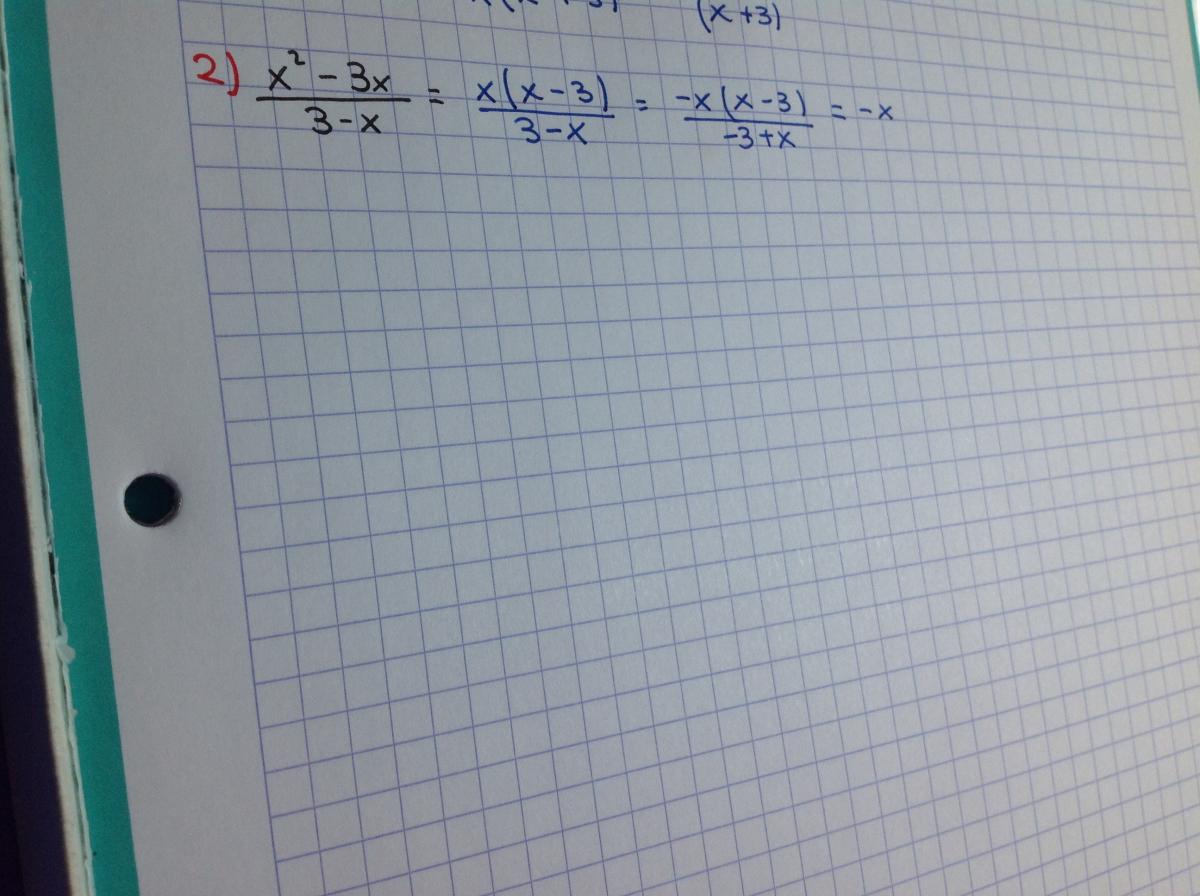 (x+3)
2) x² - 3x / 3-x = x(x-3) / 3-x = -x(x-3) / -3+x = -x